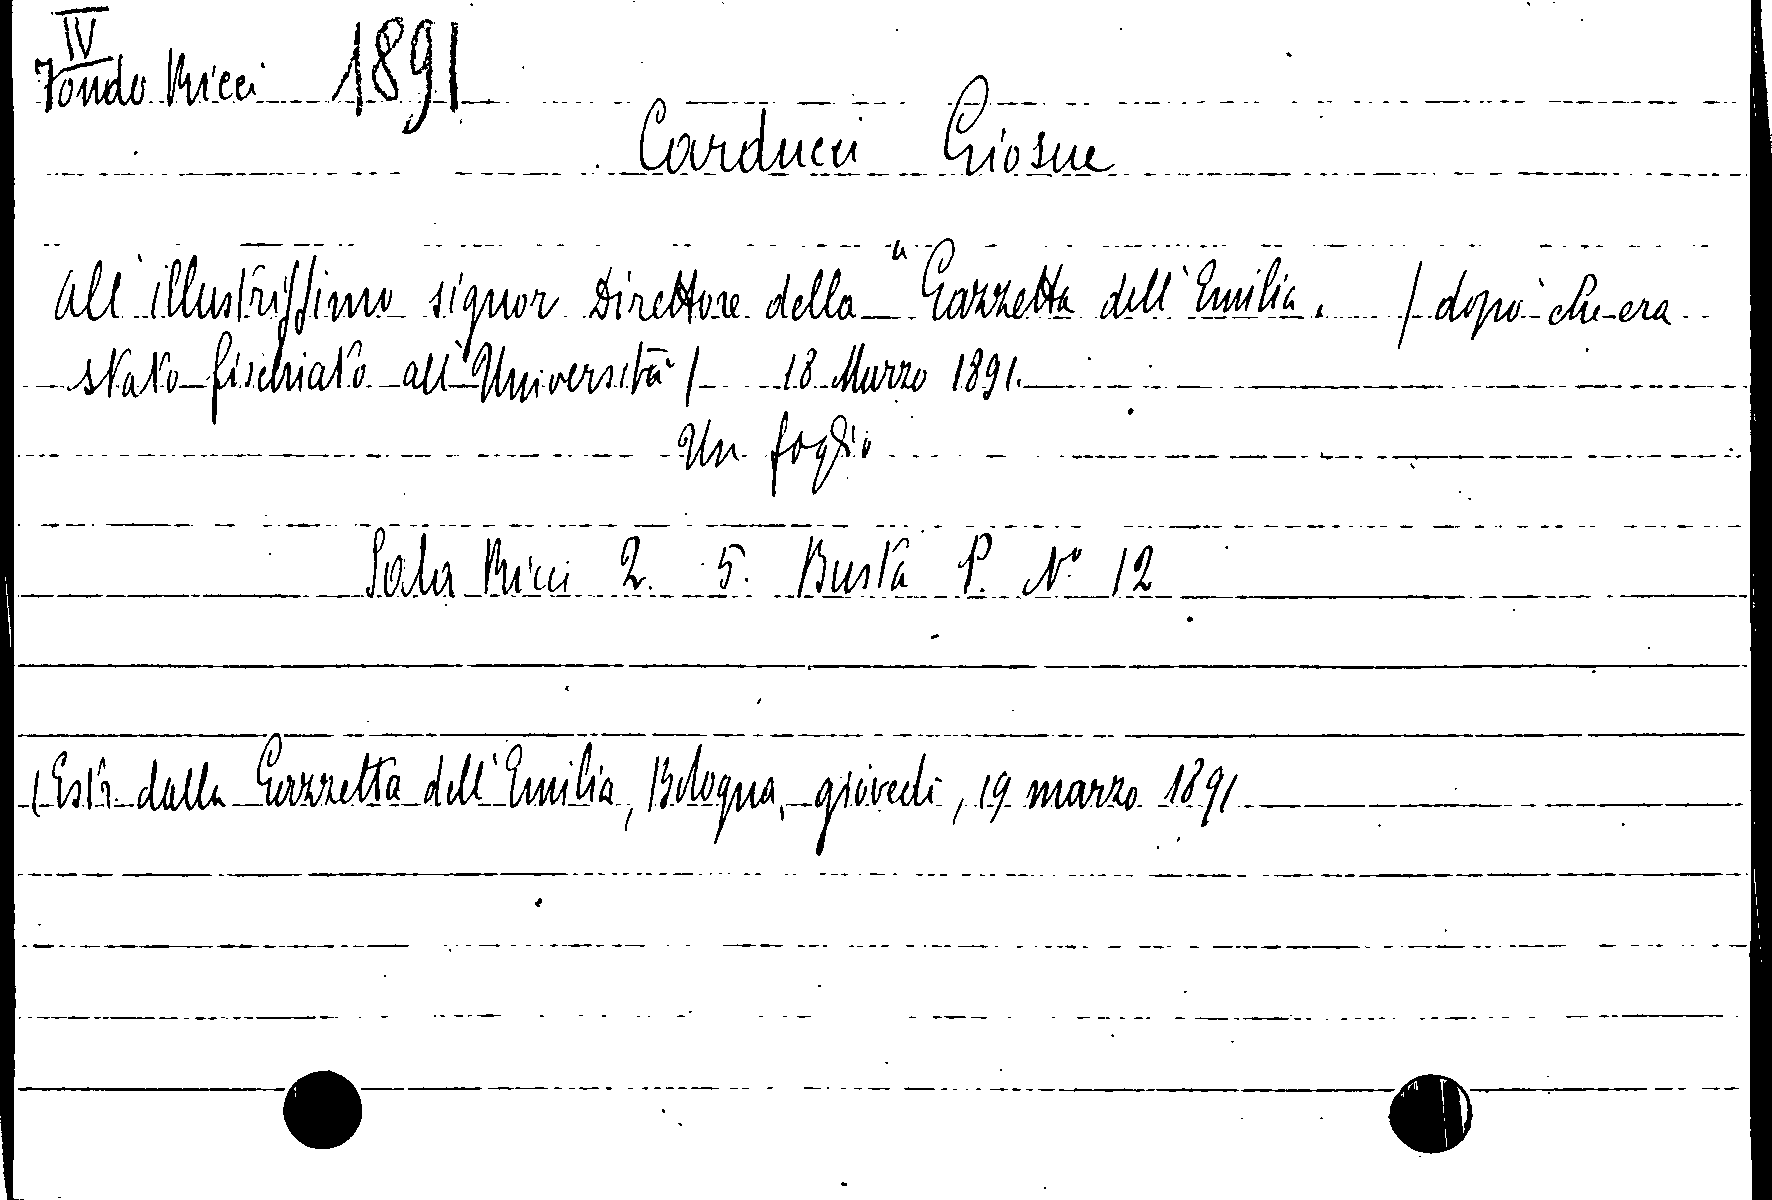 IV
Fondo Ricci 1891
Carducci Giosue
All' illustrissimo signor Direttore della "Gazzetta dell' Emilia. / dopo che era
stato fischiato all' Università / 18 Marzo 1891.
Un foglio
Sala Ricci 2. 5. Busta P. N° 12
(Estr. dalla Gazzetta dell' Emilia, Bologna, giovedì, 19 marzo 1891